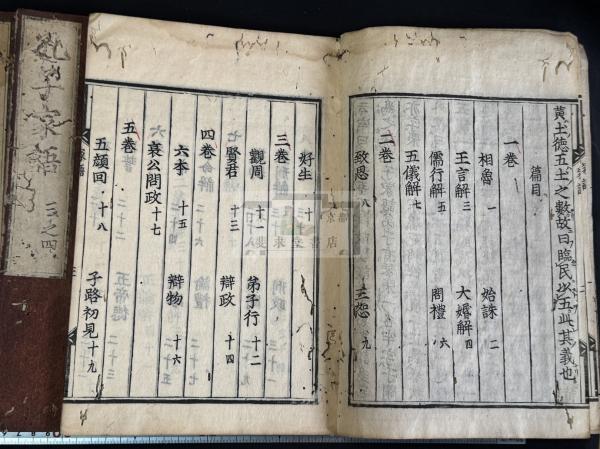 黄土德五土之數故曰臨民以五此其義也
篇目
一卷
相魯 一 始誅 二
王言解 三 大婚解 四
儒行解 五 問禮 六
五儀解 七
二卷
致思 八 三恕 九
好生 十
三卷
觀周 十一 弟子行 十二
賢君 十三 辯政 十四
四卷
六本 十五 辯物 十六
哀公問政 十七
五卷
五顔回 十八 子路初見 十九
子家語 三之四
京都
求堂書店